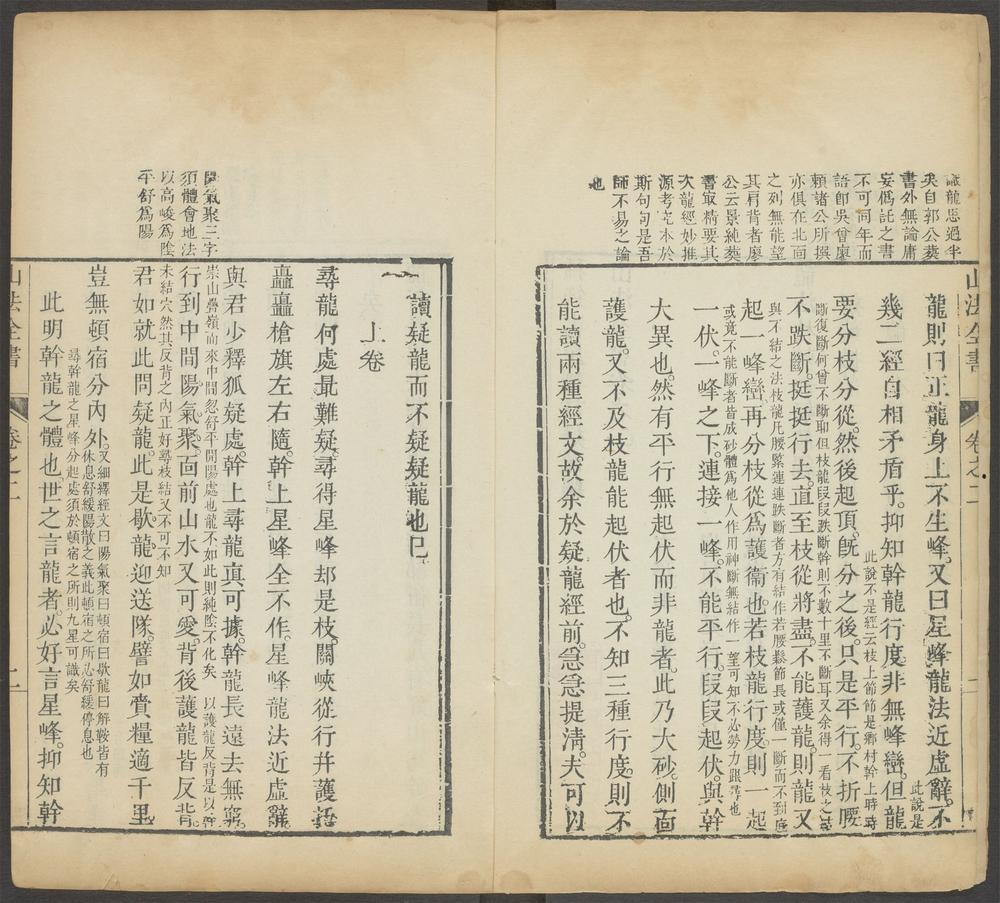 識龍思過半
矣自郭公葬
書外無論庸
妄僞託之書
不可同年而
語卽吳曾廖
賴諸公所撰
亦俱在北面
之列無能望
其肩背者廖
公云景純葬
書取精要其
次龍經妙推
源考之本於
斯句句是吾
師不易之論
也
山法全書
卷之二
龍則曰正龍身上不生峰又曰星峰龍法近虛辭不
幾二經自相矛盾乎抑知幹龍行度非無峰巒但龍
此說是
此說不是經云枝上節節是鄉村幹上時時
要分枝分從然後起頂旣分之後只是平行不折腰
斷復斷何曾不斷耶但枝龍叚叚跌斷幹則不數十里不斷耳又余得一看枝之
不跌斷挺挺行去直至枝從將盡不能護龍則龍又
與不結之法枝龍凡腰緊連連跌斷者方有結作若腰鬆節長或僅一斷而不到底
起一峰巒再分枝從爲護衞也若枝龍行度則一起
或竟不能斷者皆成砂體爲他人作用神斷無結作一望可知不必勞力跟
一伏一峰之下連接一峰不能平行叚叚起伏與幹
大異也然有平行無起伏而非龍者此乃大砂側面
護龍又不及枝龍能起伏者也不知三種行度則不
能讀兩種經文故余於疑龍經前急急提淸夫可以
陽氣聚三字
須體會地法
以高峻爲陰
平舒爲陽
讀疑龍而不疑疑龍也已
上卷
尋龍何處最難疑尋得星峰却是枝關峽從行幷護
矗矗槍旗左右隨幹上星峰全不作星峰龍法近虛辭
與君少釋狐疑處幹上尋龍眞可據幹龍長遠去無窮
崇山疊嶺而來中間忽舒平開陽處也龍不如此則純陰不化矣　以護龍反背是以幹
行到中間陽氣聚面前山水又可愛背後護龍皆反背
未結穴然其反背之內正好尋枝結又不可不知
君如就此問疑龍此是歇龍迎送隊譬如賫糧適千里
豈無頓宿分內外又細繹經文曰陽氣聚曰頓宿曰歇龍曰解鞍皆有
休息舒緩陽散之義此頓宿之所必舒緩停息也
尋幹龍之星峰分起處須於頓宿之所則九星可識矣
此明幹龍之體也世之言龍者必好言星峰抑知幹
山法全書
卷之二